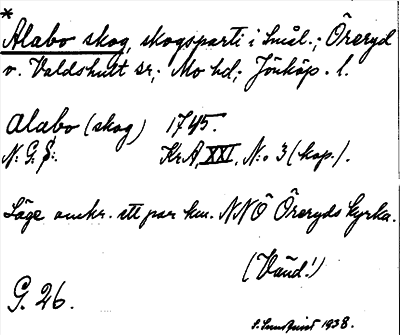 *
Alabo skog, skogsparti i Smål.; Öreryd
v. Valdshult sn; Mo hd; Jönköp. l.
Alabo (skog) 1745.
N: G. S:. KrA, XXI, N:o 3 (kop.).
Läge omkr. ett par km. NNÖ Öreryds kyrka.
(Vänd!)
G. 26.
1938.